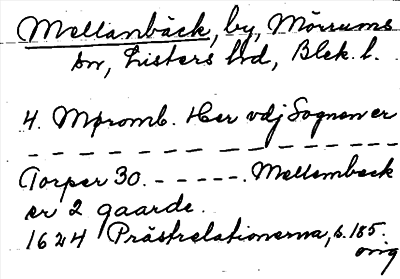 Mellanbäck, by, Mörrums
sn, Listers hd, Blek. l.
4. Møromb. Her vdj Sognen er
— — — — — — — — — — — — — —
Torper 30. — — — — — . Mellembeck
er 2 gaarde.
1624 Prästrelationerna, s. 185.
orig